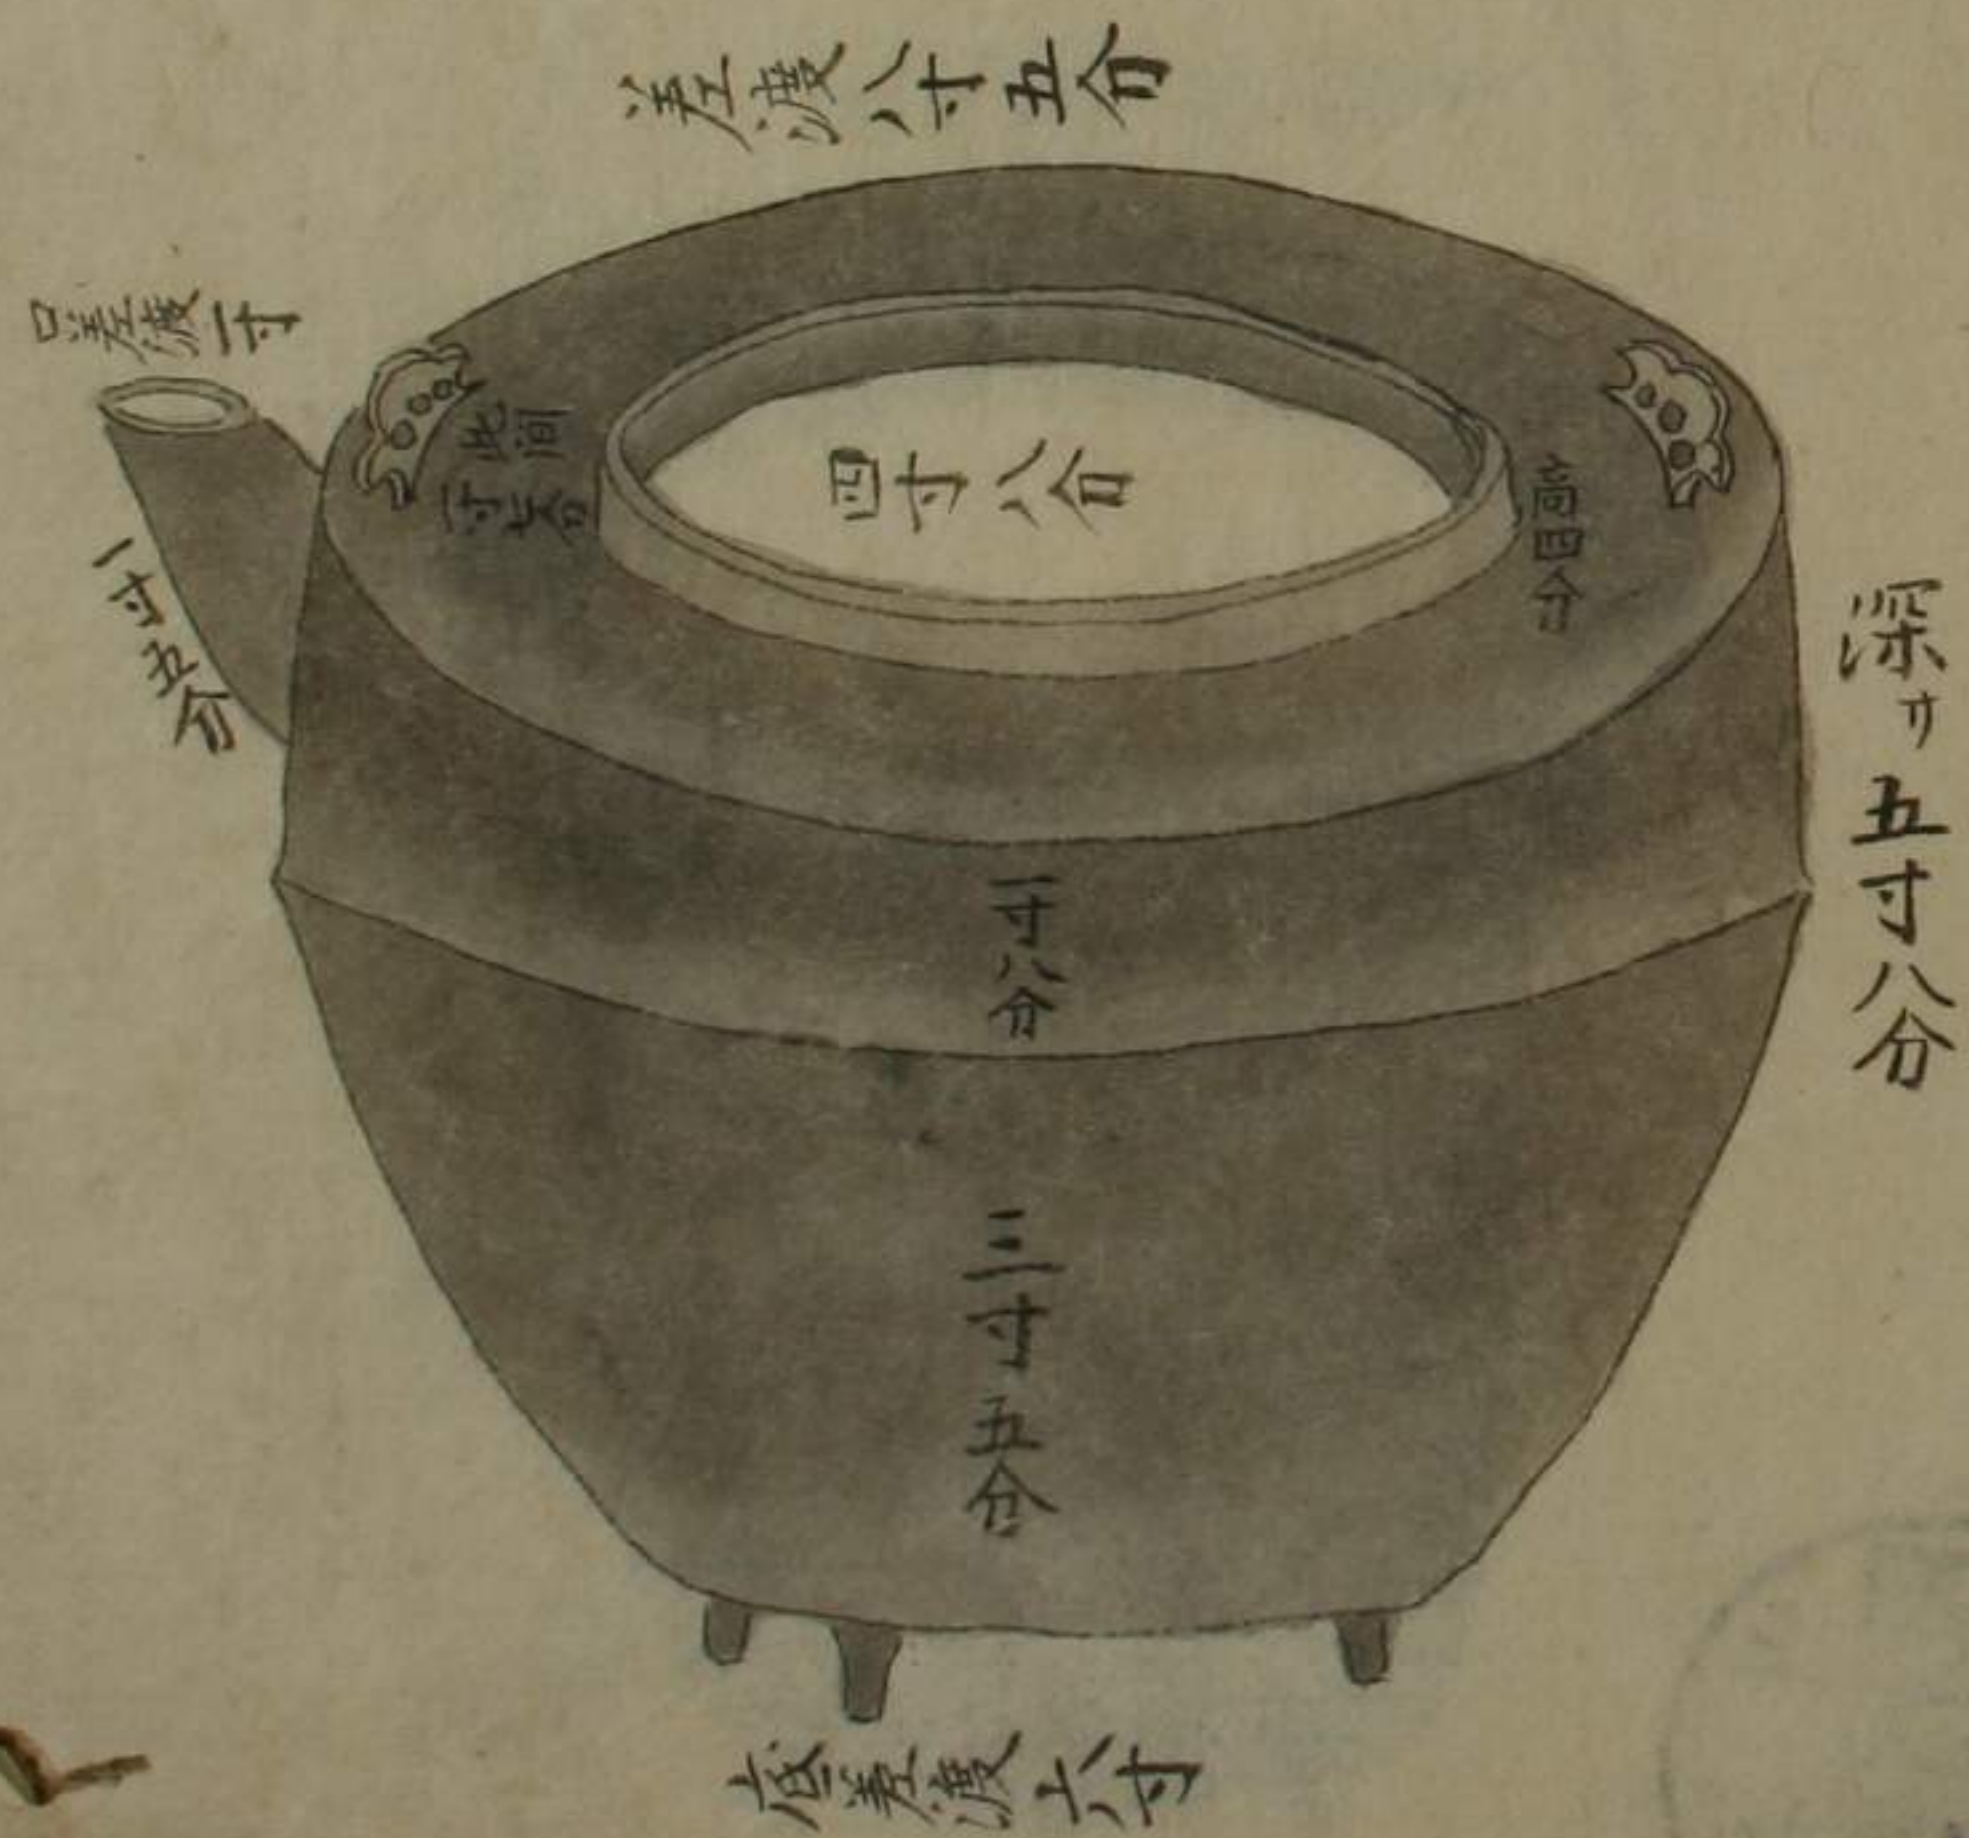 差渡八寸五分
口差渡一寸
此間
一寸七分
四寸八分
高四分
一寸五分
深サ五寸八分
一寸八分
三寸五分
底差渡六寸